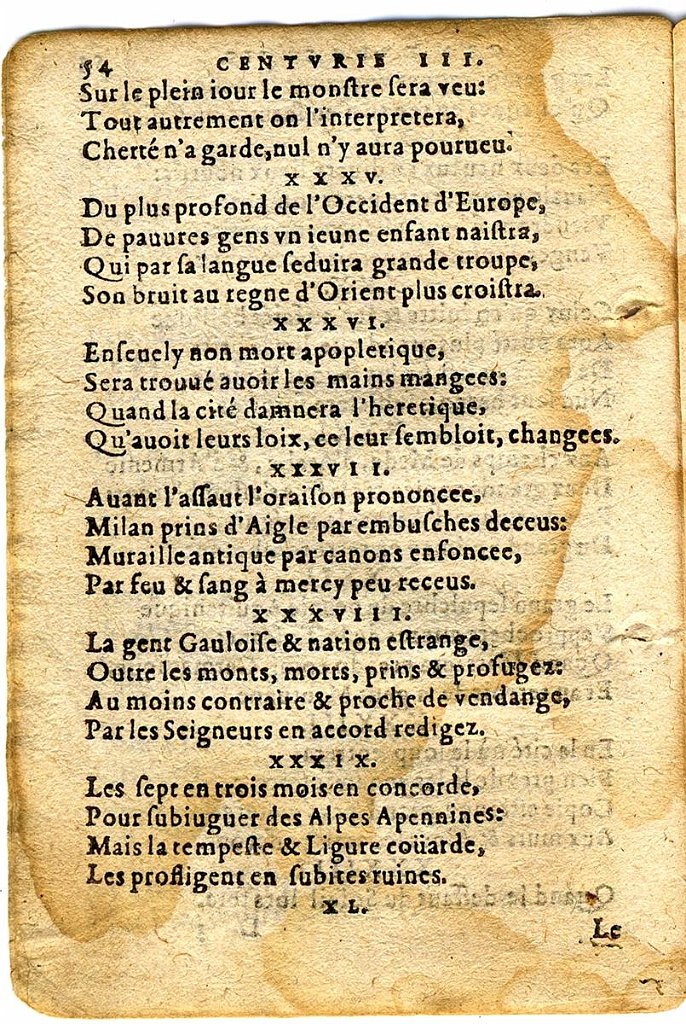 54 CENTVRIE III.
Sur le plein iour le monſtre ſera veu:
Tout autrement on l'interpretera,
Cherté n'a garde, nul n'y aura pourueu.
XXXV.
Du plus profond de l'Occident d'Europe,
De pauures gens vn ieune enfant naiſtra,
Qui par ſa langue ſeduira grande troupe,
Son bruit au regne d'Orient plus croiſtra.
XXXVI.
Enſeuely non mort apopletique,
Sera trouué auoir les mains mangees:
Quand la cité damnera l'heretique,
Qu'auoit leurs loix, ce leur ſembloit, changees.
XXXVII.
Auant l'aſſaut l'oraiſon prononcee,
Milan prins d'Aigle par embuſches deceus:
Muraille antique par canons enfoncee,
Par feu & ſang à mercy peu receus.
XXXVIII.
La gent Gauloiſe & nation eſtrange,
Outre les monts, morts, prins & profugez:
Au moins contraire & proche de vendange,
Par les Seigneurs en accord redigez.
XXXIX.
Les ſept en trois mois en concorde,
Pour ſubiuguer des Alpes Apennines:
Mais la tempeſte & Ligure coüarde,
Les profligent en ſubites ruines.
XL.
Le